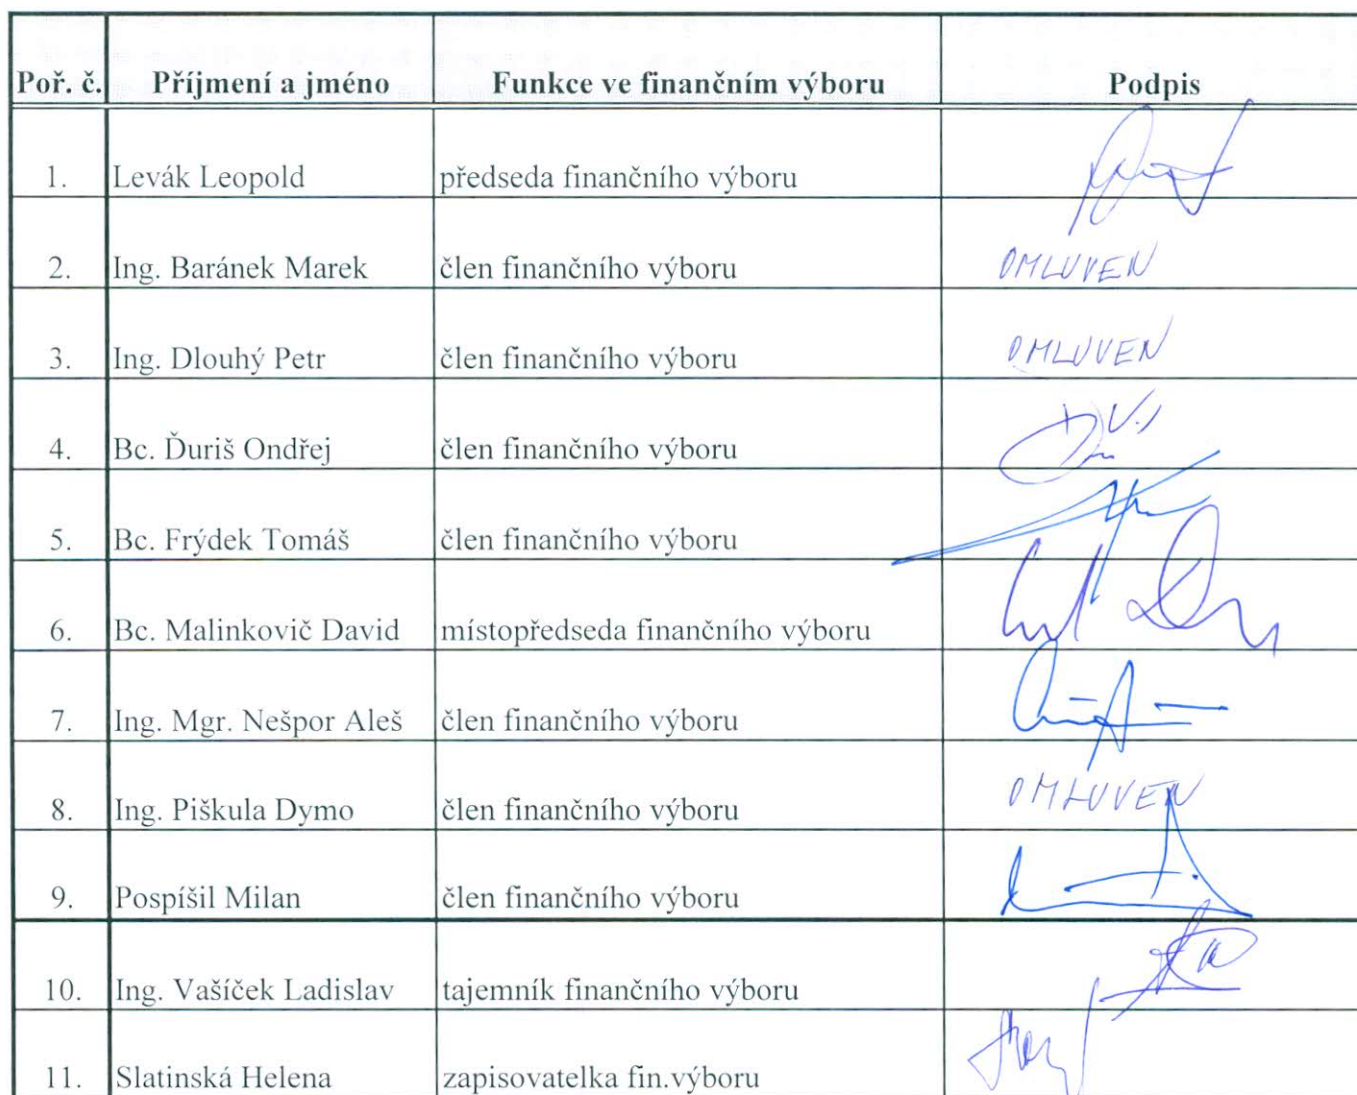 Poř. č. Příjmení a jméno Funkce ve finančním výboru Podpis
1. Levák Leopold předseda finančního výboru
2. Ing. Baránek Marek člen finančního výboru OMLUVEN
3. Ing. Dlouhý Petr člen finančního výboru OMLUVEN
4. Bc. Ďuriš Ondřej člen finančního výboru
5. Bc. Frýdek Tomáš člen finančního výboru
6. Bc. Malinkovič David místopředseda finančního výboru
7. Ing. Mgr. Nešpor Aleš člen finančního výboru
8. Ing. Piškula Dymo člen finančního výboru OMLUVEN
9. Pospíšil Milan člen finančního výboru
10. Ing. Vašíček Ladislav tajemník finančního výboru
11. Slatinská Helena zapisovatelka fin.výboru